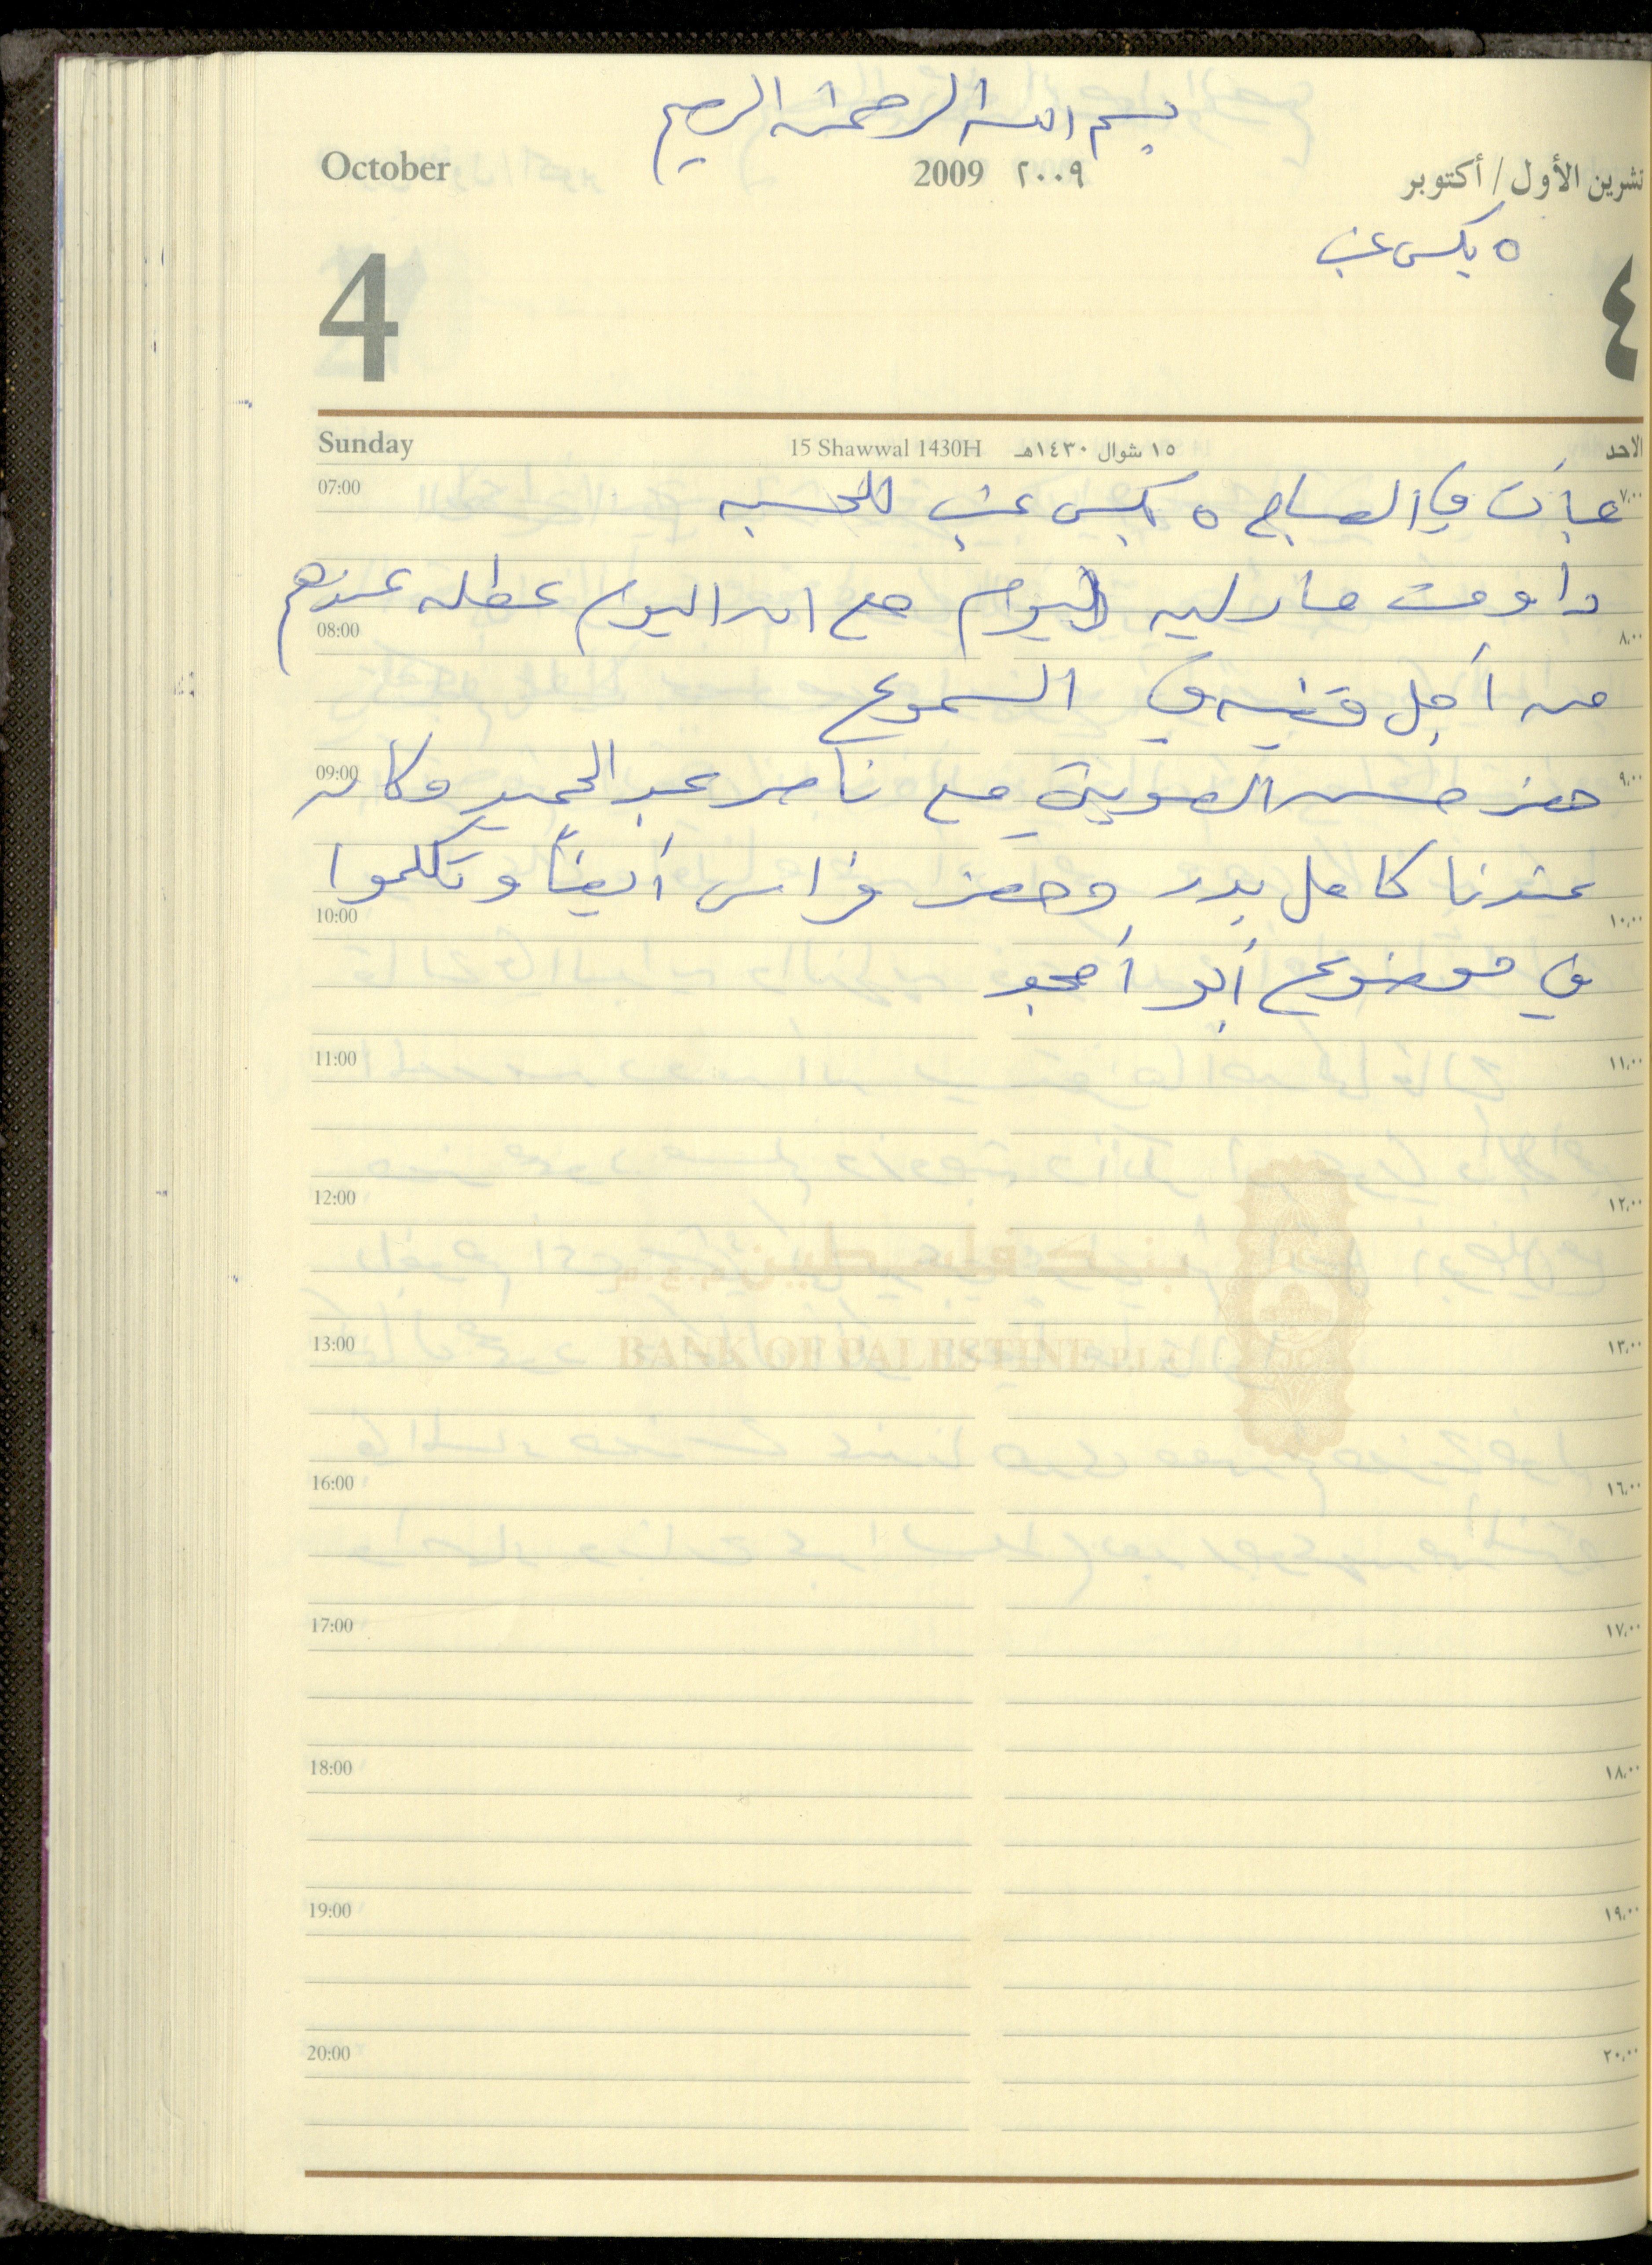 بسم الله الرحمن الرحيم
October 2009 ٢٠٠٩ تشرين الأول / أكتوبر
٥ بكس عنب
4 ٤
Sunday 15 Shawwal 1430H ١٥ شوال ١٤٣٠هـ الأحد
07:00 ٧,٠٠
عبأت في الصباح ٥ بكس عنب للحسبه
داومت مارليه اليوم مع ان اليوم عطله عندهم
08:00 ٨,٠٠
من أجل قضيه في السموع
09:00 ٩,٠٠
حضر حسن الصويتي مع ناصر عبد الحميد وكان
عندنا كامل بدر وحضر فراس أيضاً وتكلموا
10:00 ١٠,٠٠
في موضوع أبو أمجد
11:00 ١١,٠٠
12:00 ١٢,٠٠
13:00 ١٣,٠٠
BANK OF PALESTINE
16:00 ١٦,٠٠
17:00 ١٧,٠٠
18:00 ١٨,٠٠
19:00 ١٩,٠٠
20:00 ٢٠,٠٠